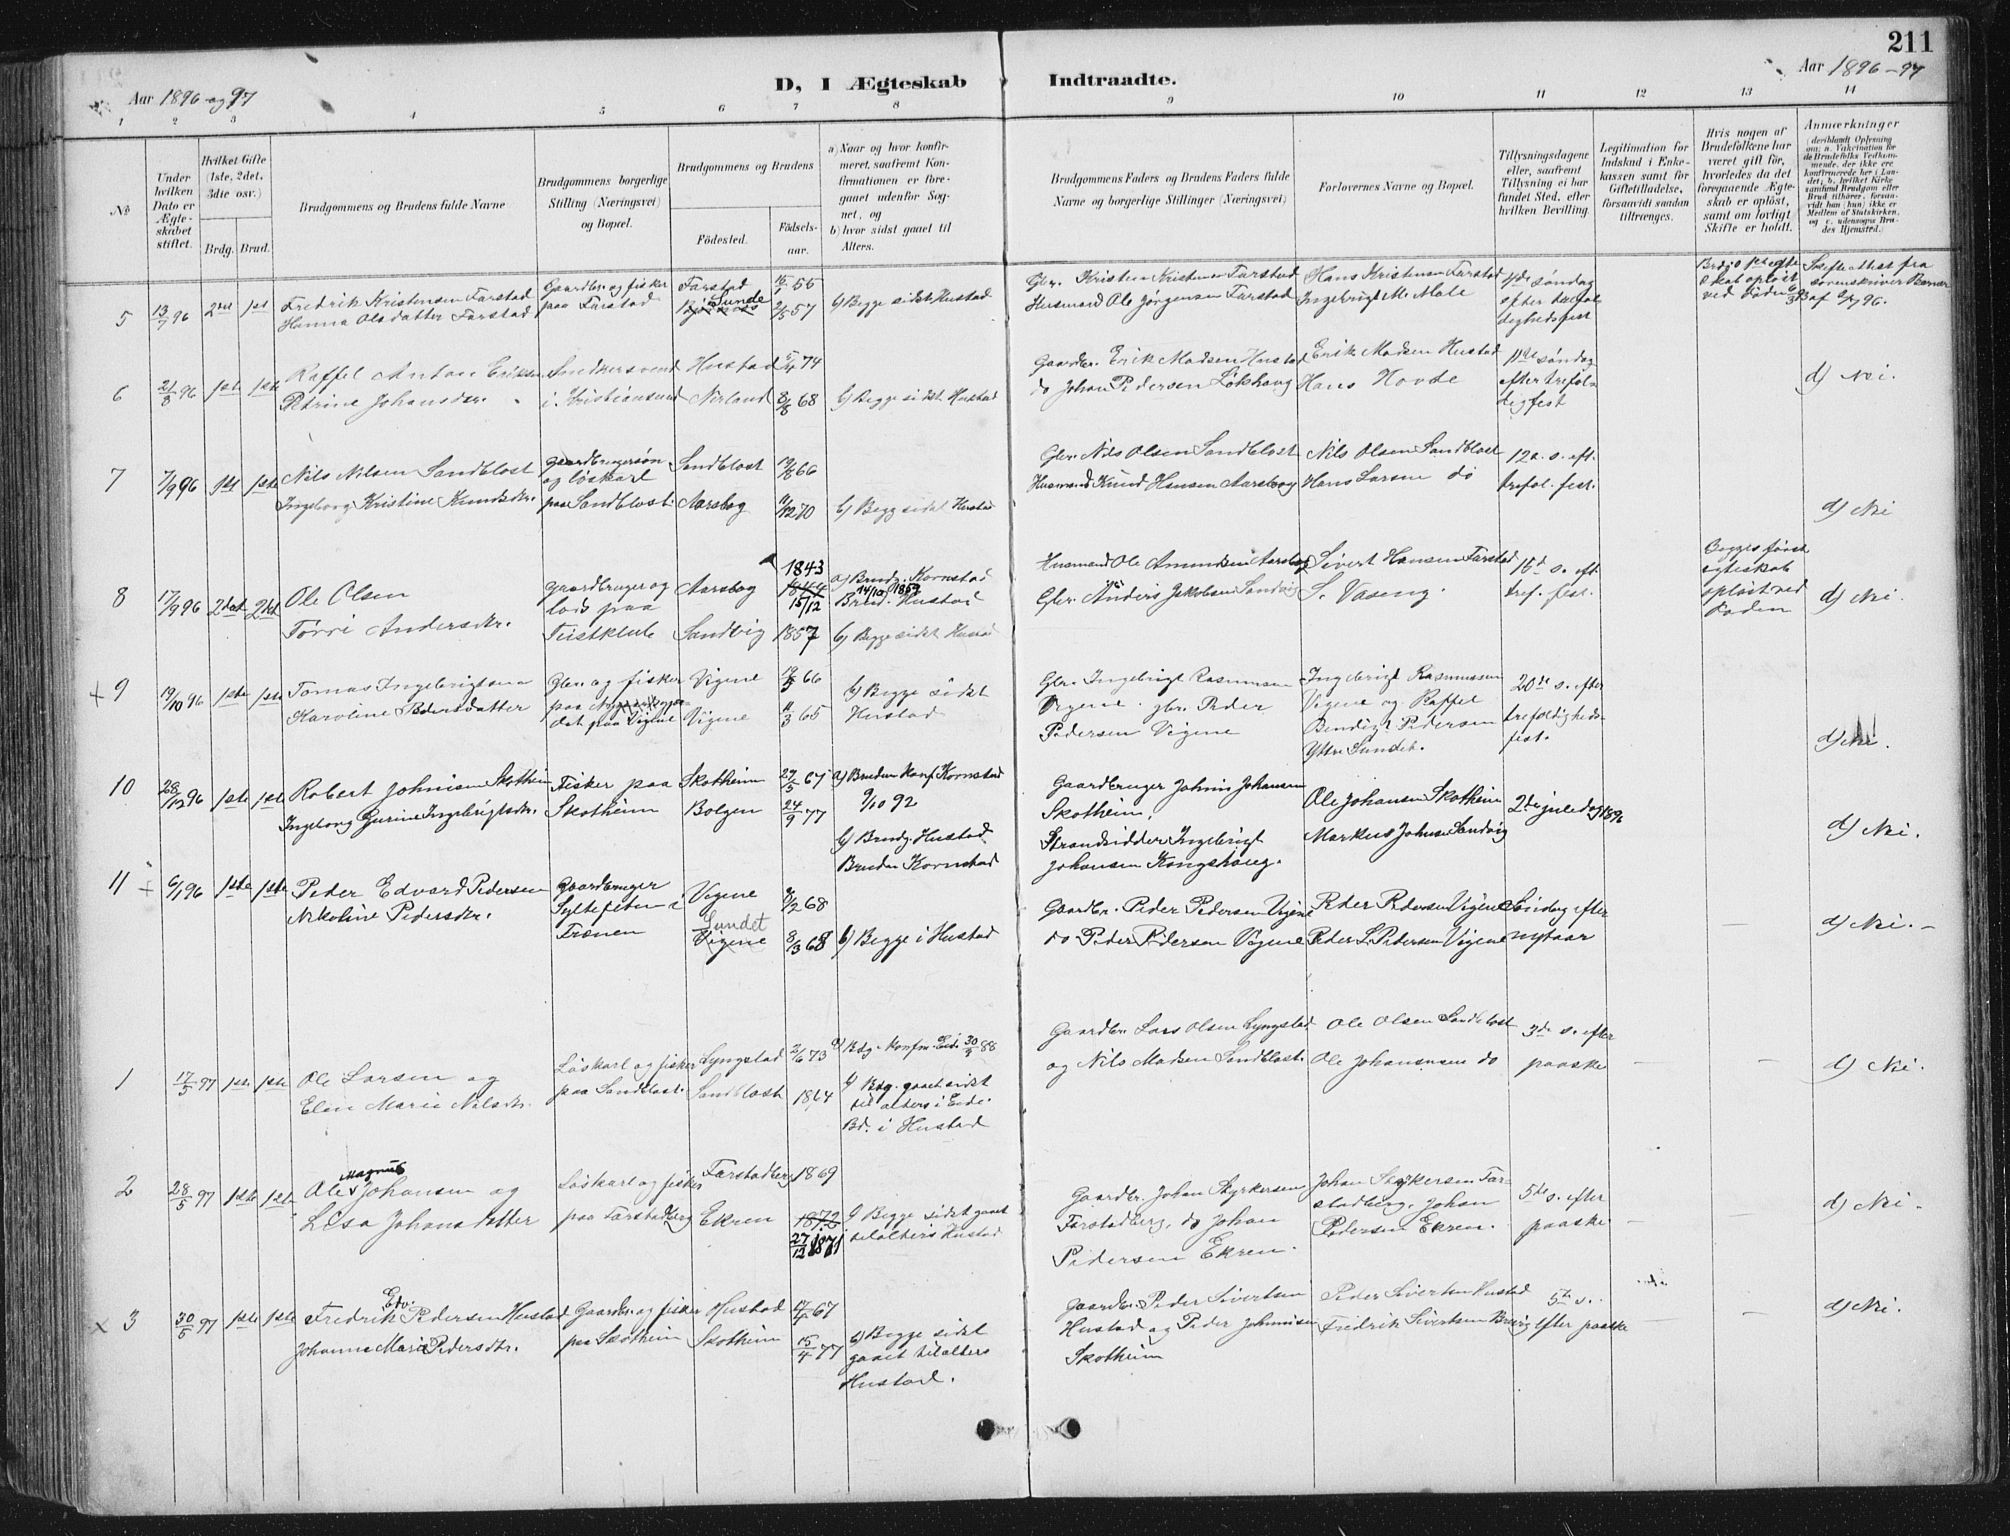 211
Aar 1896 og 97
D, I Ægteskab Indtraadte.
Aar 1896-97
1 2 3 4 5 6 7 8 9 10 11 12 13 14
No
Under hvilken Dato er Ægteskabet stiftet.
Hvilket Gifte (1ste, 2det, 3die osv.)
Brdg. Brud.
Brudgommens og Brudens fulde Navne
Brudgommens borgerlige Stilling (Næringsvei) og Bopæl.
Brudgommens og Brudens
Födested.
Födselsaar.
a) Naar og hvor konfirmeret, saafremt Konfirmationen er foregaaet udenfor Sognet, og
b) hvor sidst gaaet til Alters.
Brudgommens Faders og Brudens Faders fulde Navne og borgerlige Stillinger (Næringsvei)
Forlovernes Navne og Bopæl.
Tillysningsdagene eller, saafremt Tillysning ei har fundet Sted, efter hvilken Bevilling
Legitimation for Indskud i Enkekassen samt for Giftetilladelse, forsaavidt saadan tiltrænges.
Hvis nogen af Brudefolkene har været gift för, hvorledes da det foregaaende Ægteskab er oplöst, samt om lovligt Skifte er holdt.
Anmærkninger
5 13/7 96 2det 1ste
Fredrik Kristensen Farstad
Hanna Olsdatter Farstad
Gaardbr. og fisker
paa Farstad
Farstad
Sunde
2/5 57
b) Begge sidst Hustad
Gbr. Kristen Kristensen Farstad
Husmand Ole Jørgensen Farstad
Hans Kristensen Farstad
Ingebrigt M. Male
søndag
efter trefol
dighedsfest
6 21/8 96 1ste 1ste
Raffel Anton Eriksen
Petrine Johansdtr.
Snedkersvend
i Kristiansund
Hustad
Nerland
5/4 74
8/8 68
b) Begge sidst Hustad
Gaardbr. Erik Madsen Hustad
do Johan Pedersen Lökhaug
Erik Madsen Hustad
Hans Hovde
11te søndag
efter trefol
digfest
d) Nei.
7 7/9 96 1ste 1ste
Nils Nilsen Sandblost
Ingeborg Kristine Knudsdtr.
gaardbrugersøn
og løskarl
paa Sandblost
Sandblost
Aarsbog
66
70
b) Begge sidst Hustad
Gbr. Nils Olsen Sandblost
Husmand Knud Hansen Aarsbog
Nils Olsen Sandblost
Hans Larsen do
12te s. eft.
trefol. fest.
d) Nei
8 17/9 96 2det 2det
Ole Olsen
Torri Andersdtr.
gaardbruger og
lods paa
Teistklub
Aarsbog
Sandvig
1843
1844
15/12
1857
a) Brudg. Kornstad
14/10 1859
Brud. Hustad
b) Begge sidst Hustad
Husmand Ole Amundsen Aarsbog
Gbr. Anders Jakobsen Sandvig
Sivert Hansen Farstad
S. Vaseng.
16de s. eft
tref. fest.
Begges første
egteskab
opløst ved
Døden
d) Nei.
+ 9 19/10 96 1ste 1ste
Tomas Ingebrigtsen
Karoline Pedersdatter
Gbr. og fisker
Vigene
Vigene
19/5 66
11/3 65
b) Begge sidst
Hustad
Gbr. Ingebrigt Rasmussen
Vigene. gbr. Peder
Pedersen Vigene
Ingebrigt Rasmussen
Vigene og Raffel
Bendigt Pedersen
Yttre Sundet.
20de s. efter
trefoldigheds
fest.
d) Nei.
10 28/12 96 1ste 1ste
Robert Johnisen Skotheim
Ingeborg Gurine Ingebrigtsdtr.
Fisker paa
Skotheim
Skotheim
Bolgen
27/5 67
24/9 77
a) Bruden konf. Kornstad
9/10 92
b) Brudg. Hustad
Bruden Kornstad
Gaardbruger Johnis Johansen
Skotheim,
Strandsidder Ingebrigt
Johansen Kongshaug.
Ole Johansen Skotheim
Markus Johnsen Sandvig
2den juledag 1896
d) Nei.
11 + 6/1 96 1ste 1ste
Peder Edvard Pedersen
Nekoline Pedersdtr.
Gaardbruger
Sylteseten i
Frænen
Vigene
Sundet
Vigene
68
8/3 68
b) Begge i Hustad
Gaardbr. Peder Pedersen Vigene
do Peder Pedersen Vigene
Peder Pedersen Vigene
Peder L. Pedersen Vigene
Søndag efter
nytaar
d) Nei.
1 17/5 97 1ste 1ste
Ole Larsen og
Elen Marie Nilsdtr.
Løskarl og fisker
paa Sandblost.
Lyngstad
Sandblost
2/6 73
1864
a) Bdg. konfm. Eide 30/9 88
b) Bdg. gaaet sidst
til alters i Eide.
Bd. i Hustad
Gaardbr. Lars Olsen Lyngstad
og Nils Madsen Sandblost.
Ole Olsen Sandblost
Ole Johannsen do
3de s. efter
paaske
d) Nei.
2 28/5 97 1ste 1ste
Magnus
Ole Johansen og
Lisa Johansdatter
Løskarl og fisker
paa Farstadberg
Farstadberg
Ekren
1869
1872
27/12 1871
b) Begge sidst gaaet
tilalters Hustad
Gaardbr. Johan Styrkersen
Farstadberg, do Johan
Pedersen Ekren.
Johan Styrkersen Far-
stadberg, Johan
Pedersen Ekren.
5te s. efter
paaske
d) Nei.
x 3 30/5 97 1ste 1ste
Edv.
Fredrik Pedersen Hustad
Johanna Marie Pedersdtr.
Gaardbr. og fisker
paa Skotheim
Hustad
Skotheim
17/4 67
15/4 77
b) Begge sidst
gaaet tilalters
Hustad.
Gaardbr. Peder Sivertsen
Hustad og Peder Johnnisen
Skotheim
Peder Sivertsen Hustad
Fredrik Sivertsen
5te s.
efter paaske
d) Nei.